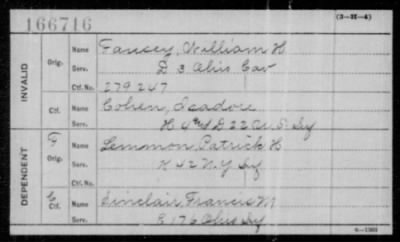 166716
(3-H-4)
INVALID
Orig.
Name Fancey, William H
Serv. D 3 Ohio Cav
Ctf. No. 279247
Ctf.
Name Cohen, Isadore
Serv. H 4 & D 22 U.S. Inf
DEPENDENT
Orig.
Name Lemmon, Patrick H
Serv. K 42 N.Y. Inf
Ctf. No.
C
Name Sinclair Francis M
Serv. B 176 Ohio Inf